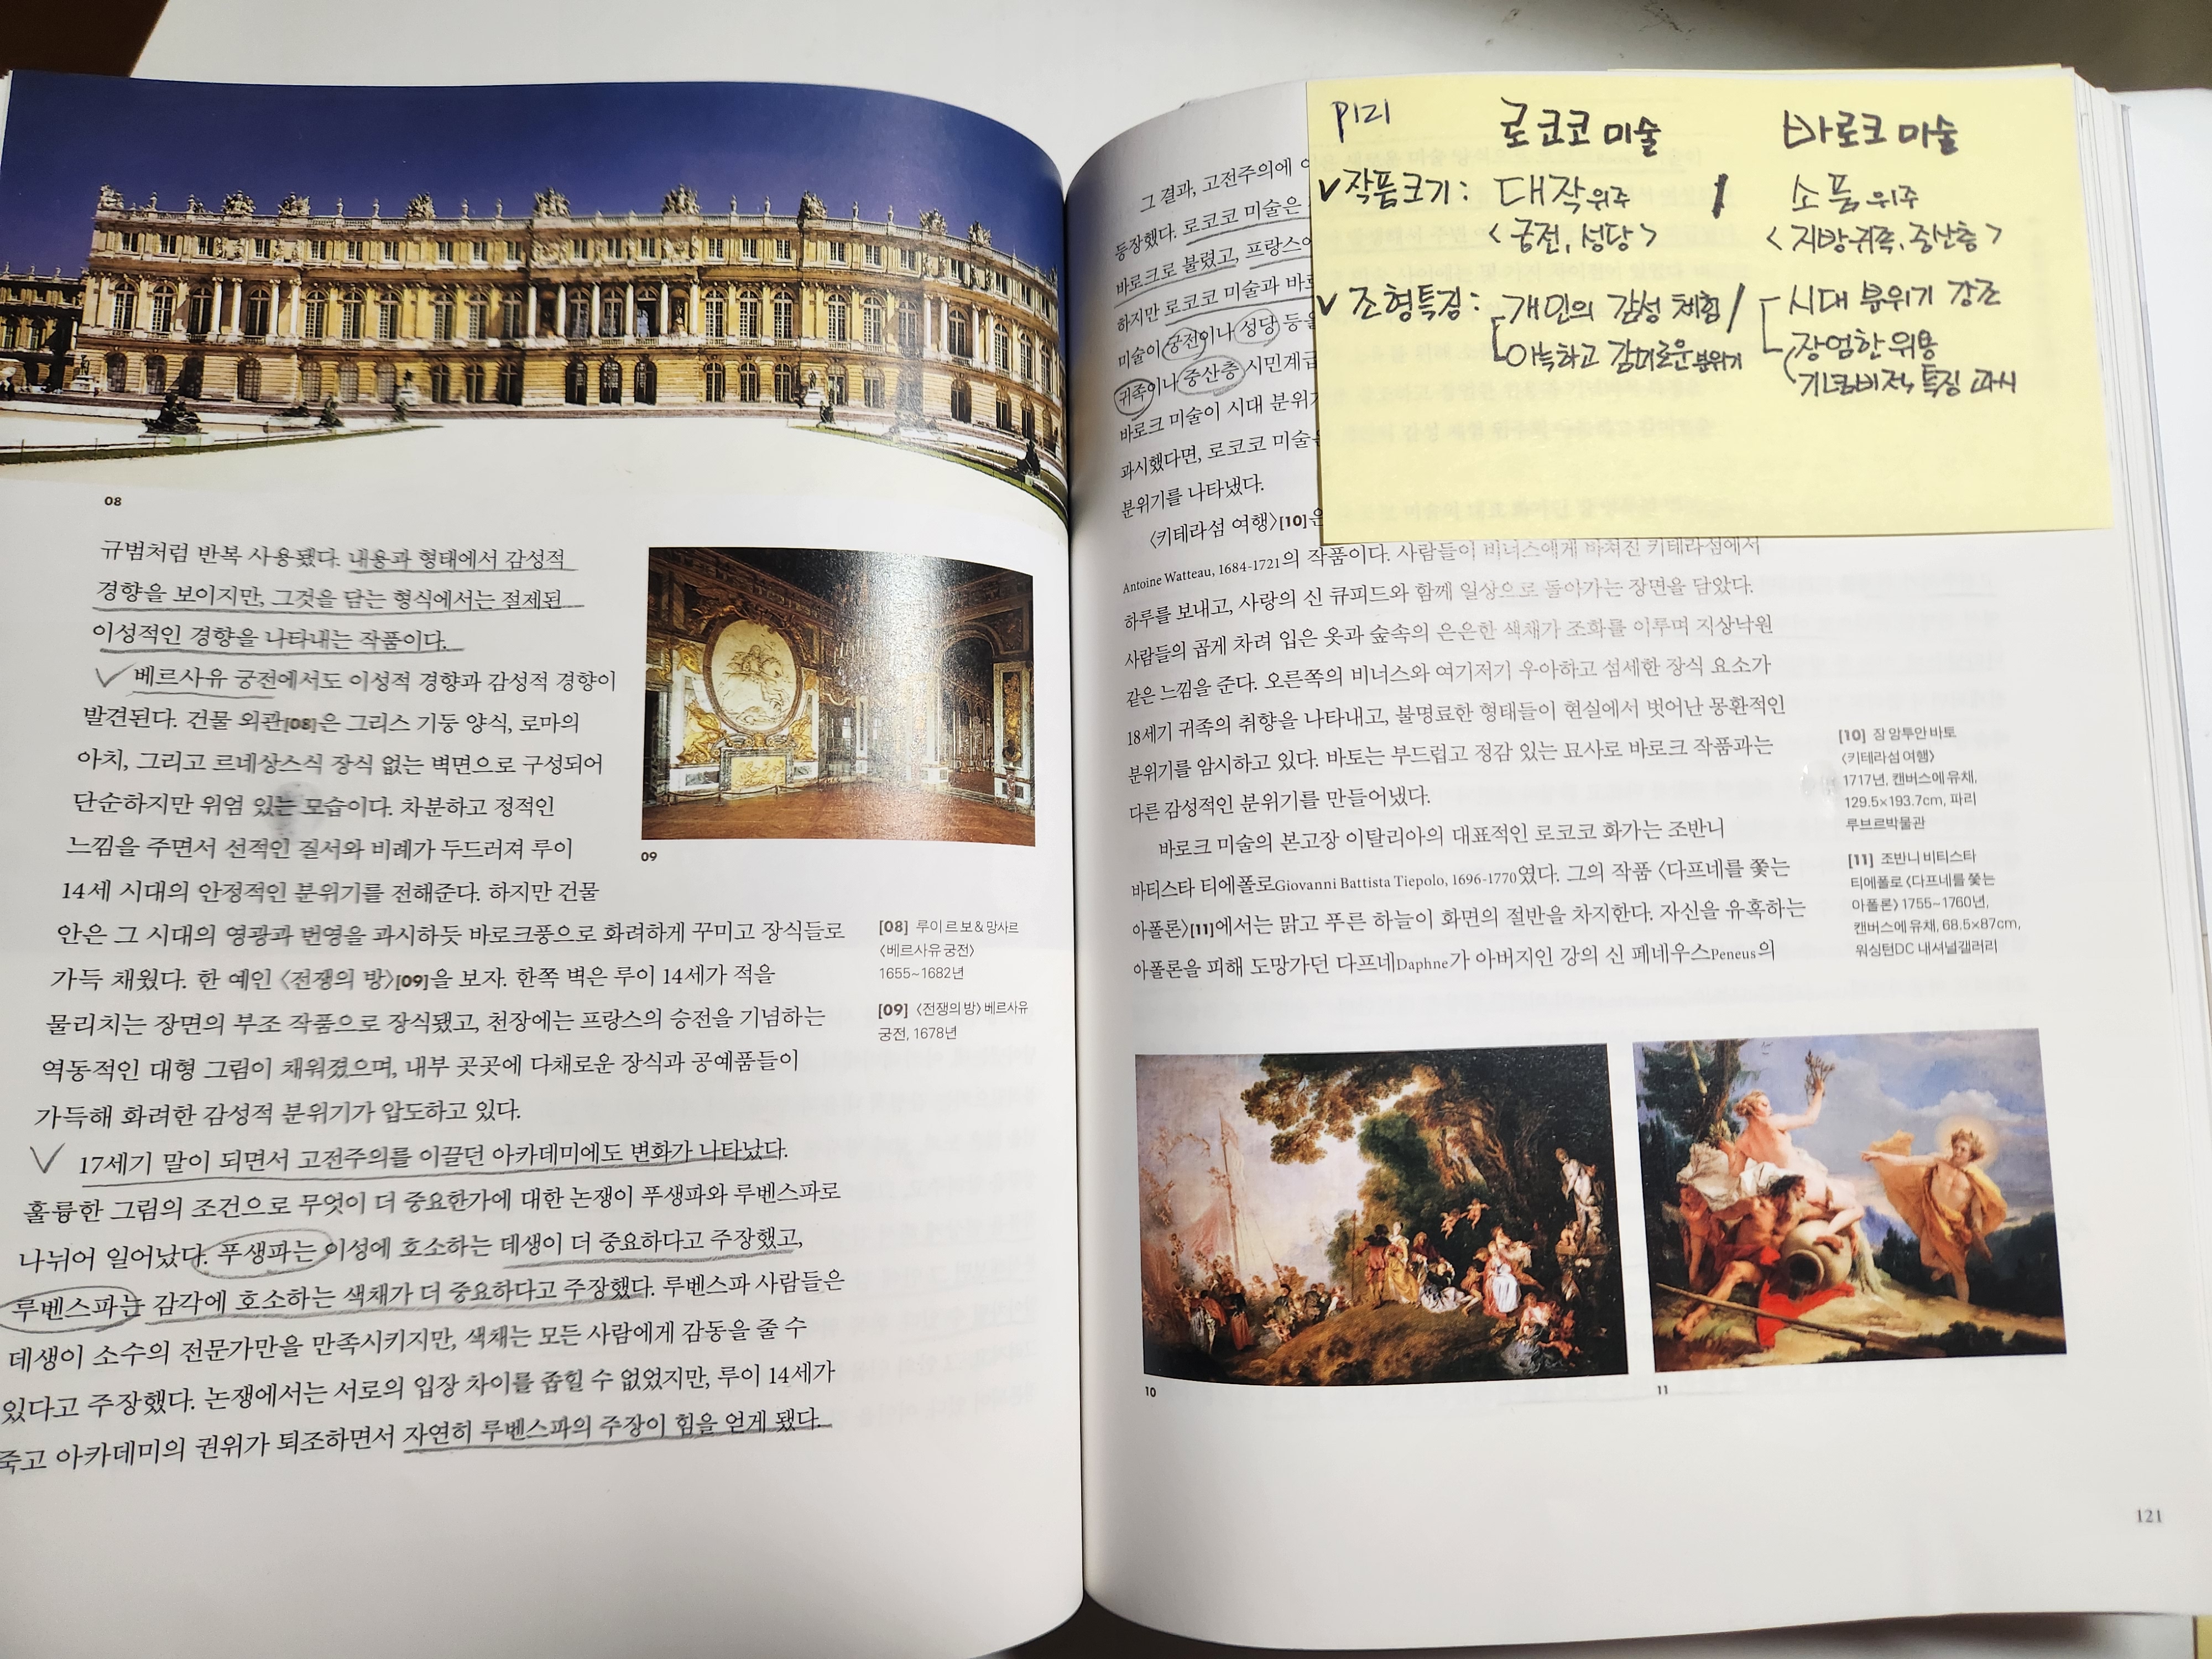 08
규범처럼 반복 사용됐다. 내용과 형태에서 감성적
경향을 보이지만, 그것을 담는 형식에서는 절제된
이성적인 경향을 나타내는 작품이다.
베르사유 궁전에서도 이성적 경향과 감성적 경향이
발견된다. 건물 외관[08]은 그리스 기둥 양식, 로마의
아치, 그리고 르네상스식 장식 없는 벽면으로 구성되어
단순하지만 위엄 있는 모습이다. 차분하고 정적인
느낌을 주면서 선적인 질서와 비례가 두드러져 루이
14세 시대의 안정적인 분위기를 전해준다. 하지만 건물
안은 그 시대의 영광과 번영을 과시하듯 바로크풍으로 화려하게 꾸미고 장식들로
가득 채웠다. 한 예인 〈전쟁의 방〉[09]을 보자. 한쪽 벽은 루이 14세가 적을
물리치는 장면의 부조 작품으로 장식됐고, 천장에는 프랑스의 승전을 기념하는
역동적인 대형 그림이 채워졌으며, 내부 곳곳에 다채로운 장식과 공예품들이
가득해 화려한 감성적 분위기가 압도하고 있다.
17세기 말이 되면서 고전주의를 이끌던 아카데미에도 변화가 나타났다.
훌륭한 그림의 조건으로 무엇이 더 중요한가에 대한 논쟁이 푸생파와 루벤스파로
나뉘어 일어났다. 푸생파는 이성에 호소하는 데생이 더 중요하다고 주장했고,
루벤스파는 감각에 호소하는 색채가 더 중요하다고 주장했다. 루벤스파 사람들은
데생이 소수의 전문가만을 만족시키지만, 색채는 모든 사람에게 감동을 줄 수
있다고 주장했다. 논쟁에서는 서로의 입장 차이를 좁힐 수 없었지만, 루이 14세가
죽고 아카데미의 권위가 퇴조하면서 자연히 루벤스파의 주장이 힘을 얻게 됐다.
09
[08] 루이 르 보 & 망사르
〈베르사유 궁전〉
1655~1682년
[09] 〈전쟁의 방〉 베르사유
궁전, 1678년
P121
로코코 미술 바로크 미술
✓작품크기: 대작위주 / 소품위주
<궁전, 성당> <지방귀족, 중산층>
✓조형특징: 개인의 감성 체험 / 시대 분위기 강조
아늑하고 감미로운 분위기 장엄한 위용
기념비적 특징 과시
그 결과, 고전주의에
등장했다. 로코코 미술은
바로크로 불렸고, 프랑스
하지만 로코코 미술과
미술이 궁전이나 성당 등을
귀족이나 중산층 시민계급
바로크 미술이 시대 분위
과시했다면, 로코코 미술
분위기를 나타냈다.
〈키테라섬 여행〉[10]은
Antoine Watteau, 1684-1721의 작품이다. 사람들이 비너스에게 바쳐진 키테라섬에서
하루를 보내고, 사랑의 신 큐피드와 함께 일상으로 돌아가는 장면을 담았다.
사람들의 곱게 차려 입은 옷과 숲속의 은은한 색채가 조화를 이루며 지상낙원
같은 느낌을 준다. 오른쪽의 비너스와 여기저기 우아하고 섬세한 장식 요소가
18세기 귀족의 취향을 나타내고, 불명료한 형태들이 현실에서 벗어난 몽환적인
분위기를 암시하고 있다. 바토는 부드럽고 정감 있는 묘사로 바로크 작품과는
다른 감성적인 분위기를 만들어냈다.
바로크 미술의 본고장 이탈리아의 대표적인 로코코 화가는 조반니
바티스타 티에폴로Giovanni Battista Tiepolo, 1696-1770였다. 그의 작품 〈다프네를 쫓는
아폴론〉[11]에서는 맑고 푸른 하늘이 화면의 절반을 차지한다. 자신을 유혹하는
아폴론을 피해 도망가던 다프네Daphne가 아버지인 강의 신 페네우스Peneus의
[10] 장 앙투안 바토
〈키테라섬 여행〉
1717년, 캔버스에 유채,
129.5×193.7cm, 파리
루브르박물관
[11] 조반니 비티스타
티에폴로 〈다프네를 쫓는
아폴론〉 1755~1760년,
캔버스에 유채, 68.5×87cm,
워싱턴DC 내셔널갤러리
10
11
121